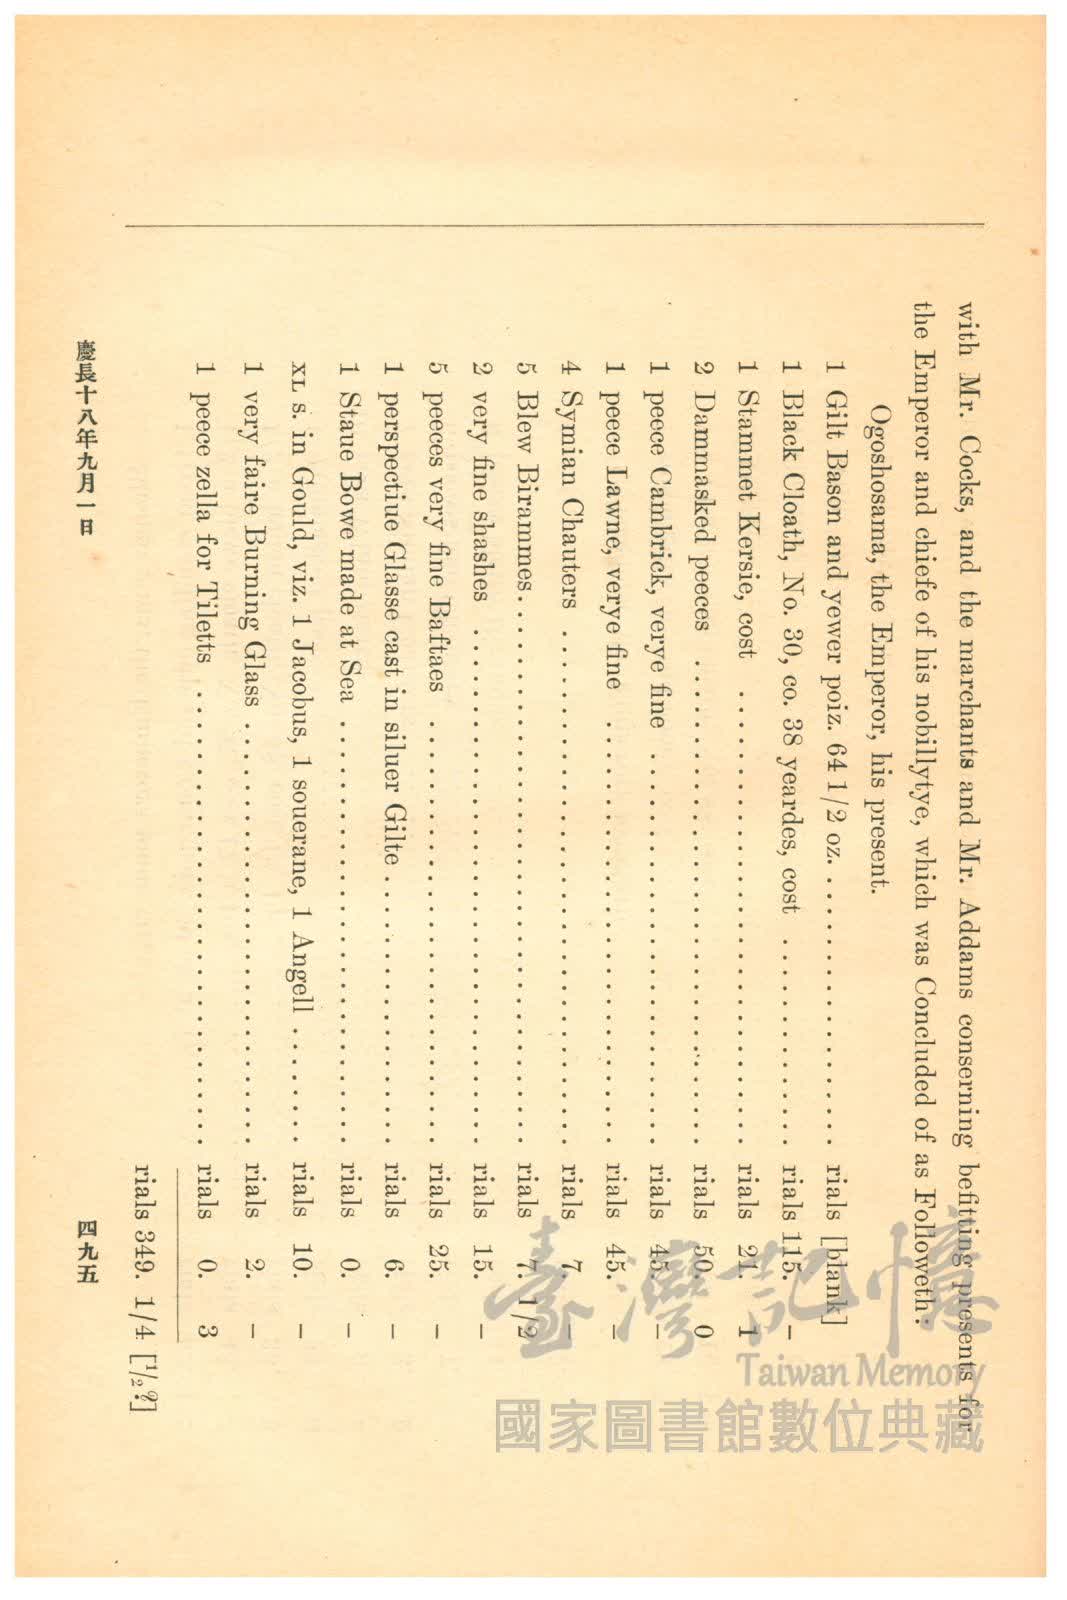 with Mr. Cocks, and the marchants and Mr. Addams conserning befitting presents for
the Emperor and chiefe of his nobillytye, which was Concluded of as Followeth:
Ogoshosama, the Emperor, his present.
1 Gilt Bason and yewer poiz. 64 1/2 oz. . . . . . . . . . . . . . . . . . . rials [blank]
1 Black Cloath, No. 30, co. 38 yeardes, cost . . . . . . . . . . . . rials 115. –
1 Stammet Kersie, cost . . . . . . . . . . . . . . . . . . . . . . . . . . . rials 21. 1
2 Dammasked peeces . . . . . . . . . . . . . . . . . . . . . . . . . . . . rials 50. 0
1 peece Cambrick, verye fine . . . . . . . . . . . . . . . . . . . . . . . rials 45. –
1 peece Lawne, verye fine . . . . . . . . . . . . . . . . . . . . . . . . . rials 45. –
4 Symian Chauters . . . . . . . . . . . . . . . . . . . . . . . . . . . . . . rials 7. –
5 Blew Birammes. . . . . . . . . . . . . . . . . . . . . . . . . . . . . . . . rials 7. 1/2
2 very fine shashes . . . . . . . . . . . . . . . . . . . . . . . . . . . . . . rials 15. –
5 peeces very fine Baftaes . . . . . . . . . . . . . . . . . . . . . . . . . rials 25. –
1 perspectiue Glasse cast in siluer Gilte . . . . . . . . . . . . . . . . rials 6. –
1 Staue Bowe made at Sea . . . . . . . . . . . . . . . . . . . . . . . . . rials 0. –
XL s. in Gould, viz. 1 Jacobus, 1 souerane, 1 Angell . . . . . . . . rials 10. –
1 very faire Burning Glass . . . . . . . . . . . . . . . . . . . . . . . . . rials 2. –
1 peece zella for Tiletts . . . . . . . . . . . . . . . . . . . . . . . . . . . rials 0. 3
rials 349. 1/4 [1/2?]
慶長十八年九月一日
四九五
臺灣記憶
Taiwan Memory
國家圖書館數位典藏